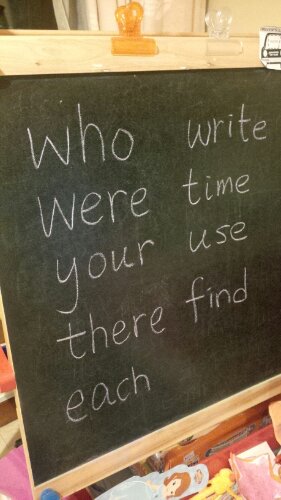 who write
were time
your use
there find
each